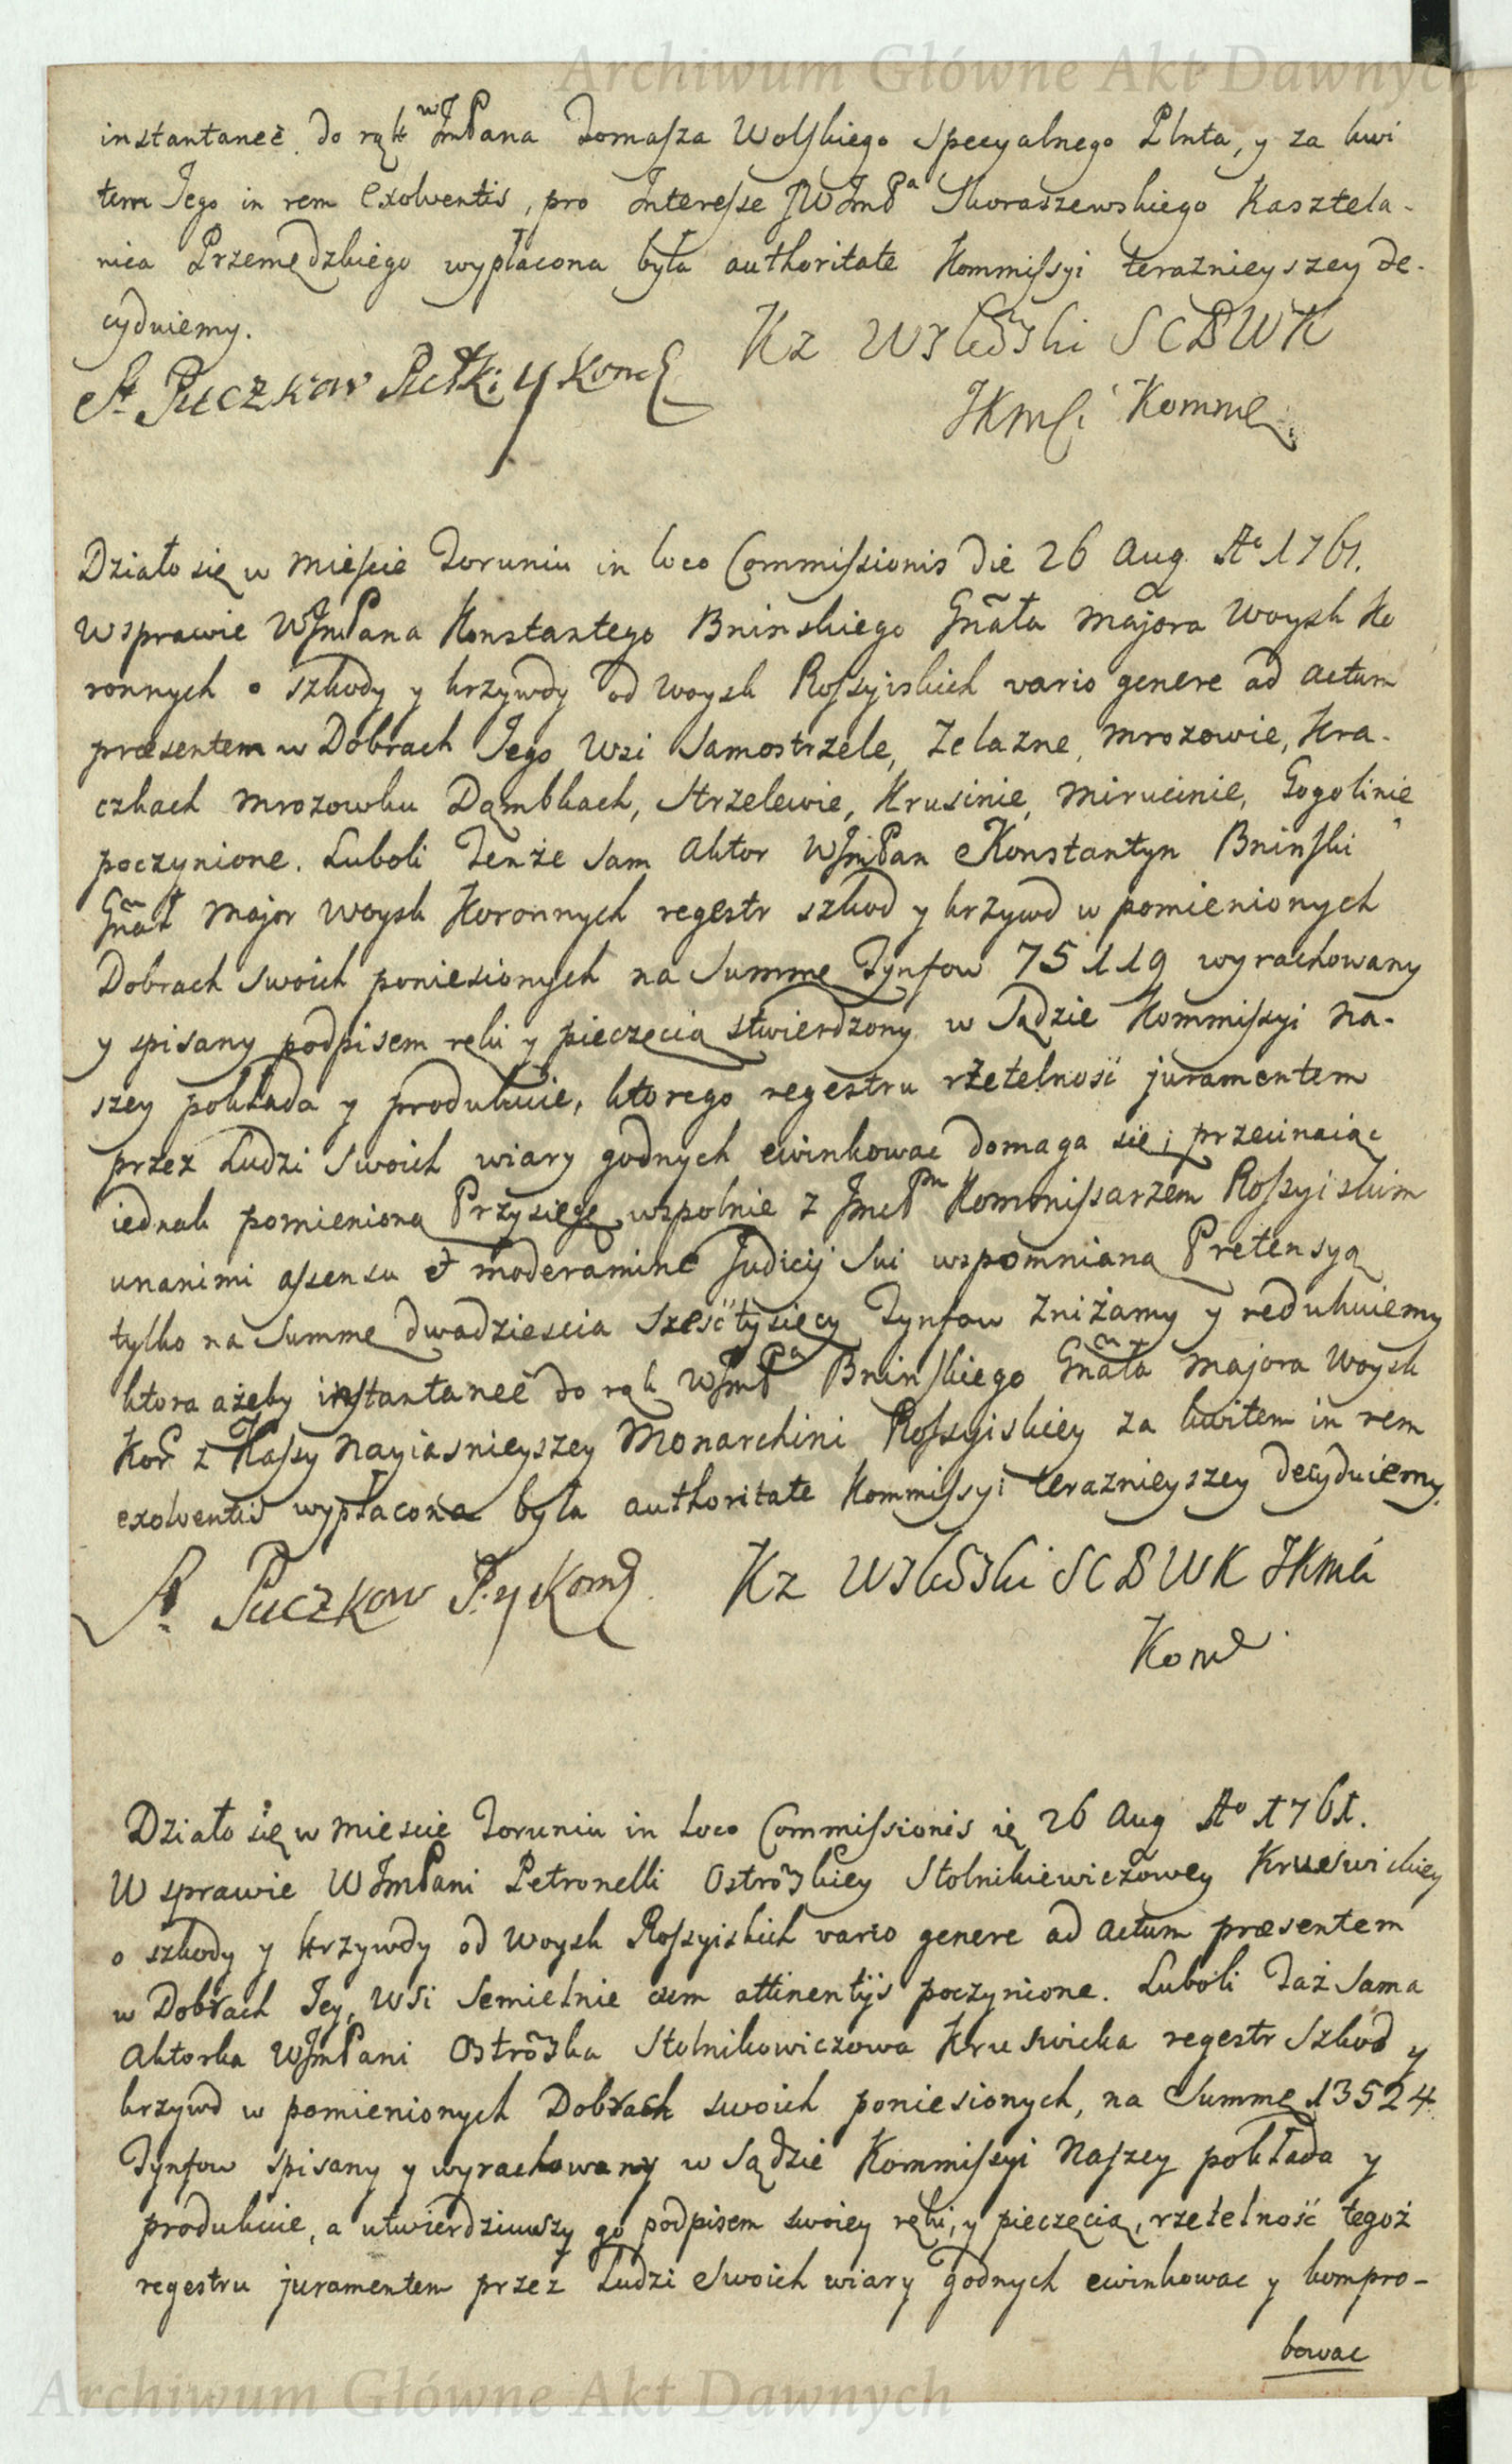 Archiwum Główne Akt Dawnych
instantanee do rąk WJmPana Tomasza Wolskiego Specyalnego Plnta, y za kwi
tem Jego in rem Exolventis, pro Interesse JWJmPa Skoraszewskiego Kasztela-
nica Przemędzkiego wypłacona była authoritate Kommissyi teraznieyszey de-
cyduiemy.
St Puczkow Pułki y Kome
Kz Wsledski SCBWK
JKMsci Komme
Działo się w Miescie Toruniu in loco Commissionis die 26 Aug. Ao 1761.
W sprawie WJmPana Konstantego Bninskiego Gnała Majora Woysk Ko
ronnych o szkody y krzywdy od Woysk Rossyiskich vario genere ad actum
præsentem w Dobrach Jego Wsi Samostrzele, Zelazne, Mrozowie, Kra-
czkach Mrozowku Dąmbkach, Strzelewie, Krusinie, Mirucinie, Gogolinie
poczynione. Luboli Tenże Sam Aktor WJmPan Konstantyn Bninski
Gnał Major Woysk Koronnych regestr szkod y krzywd w pomienionych
Dobrach swoich poniesionych na Summę Tynfow 75119 wyrachowany
y spisany podpisem ręki y pieczęcią stwierdzony w Sądzie Kommissyi Na-
szey pokłada y produkuie, ktorego regestru rzetelność juramentem
przez Ludzi Swoich wiary godnych ewinkowac domaga się; przecinaiąc
iednak pomienioną Przysięgę wspolnie z JmcPm Kommissarzem Rossyiskim
unanimi assensu et moderamine Judicij Sui wspomnianą Pretensyą
tylko na Summę dwadziescia sześć tysięcy Tynfow zniżamy y redukuiemy
ktora ażeby instantanee do rąk WJmPa Bninskiego Gnała Majora Woysk
Kor z Kassy Nayiasnieyszey Monarchini Rossyiskiey za kwitem in rem
exolventis wypłacona była authoritate Kommissyi teraznieyszey decyduiemy.
St Puczkow P. y Kome
Kz Wsledski SCBWK JKMci
Kome
Działo się w Miescie Toruniu in Loco Commissionis ię 26 Aug Ao 1761.
W sprawie WJmPani Petronelli Ostrowskiey Stolnikiewiczowey Kruswickiey
o szkody y krzywdy od Woysk Rossyiskich vario genere ad actum præsentem
w Dobrach Jey, Wsi Semielnie cum attinentijs poczynione. Luboli Taż Sama
Aktorka WJmPani Ostrowska Stolnikowiczowa Kruswicka regestr Szkod y
krzywd w pomienionych Dobrach swoich poniesionych, na Summę 13524
Tynfow spisany y wyrachowany w Sądzie Kommissyi Naszey pokłada y
produkuie, a utwierdziwszy go podpisem swoiey ręki, y pieczęcią, rzetelność tegoż
regestru juramentem przez Ludzi Swoich wiary godnych ewinkowac y kompro-
bowac
Archiwum Główne Akt Dawnych